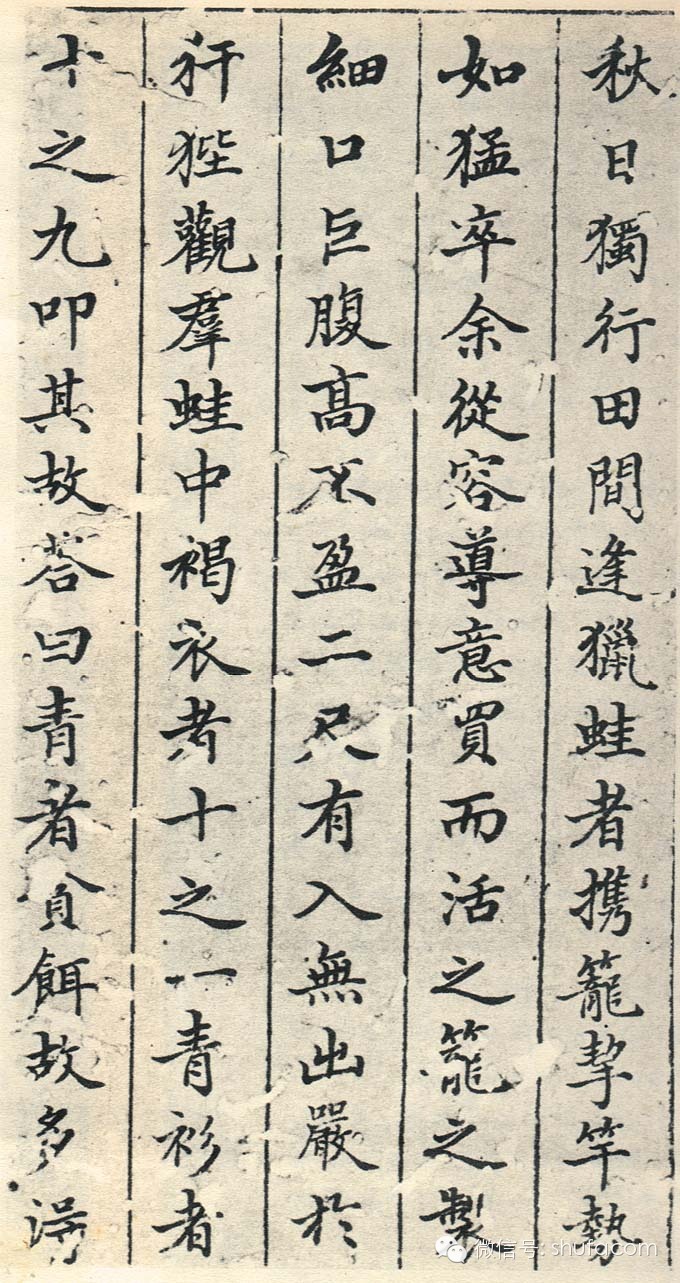 秋日獨行田間逢獵蛙者携籠挈竿勢
如猛卒余從容導意買而活之籠之製
細口巨腹高不盈二尺有入無出嚴於
犴狴觀羣蛙中褐衣者十之一青衫者
十之九叩其故荅曰青者貪餌故多得
微信号: shufacom